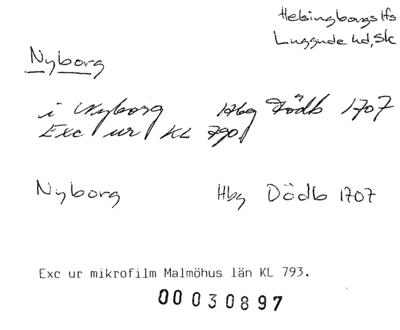 Helsingborgs lfs
Luggude hd, Sk
Nyborg
i Nyborg Hbg Dödb 1707
Exc ur KL 790
Nyborg Hbg Dödb 1707
Exc ur mikrofilm Malmöhus län KL 793.
00030897